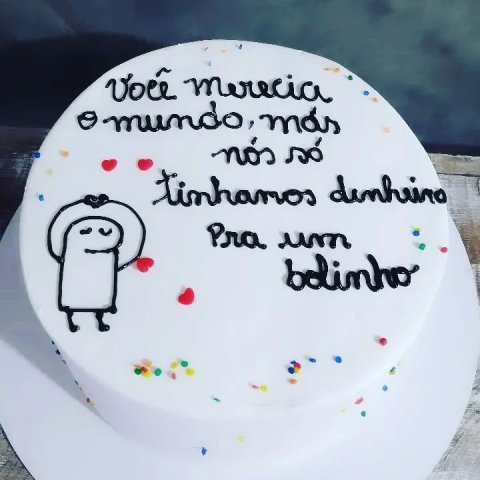 Você merecia
o mundo, mas
nós só
tinhamos dinheiro
Pra um
bolinho